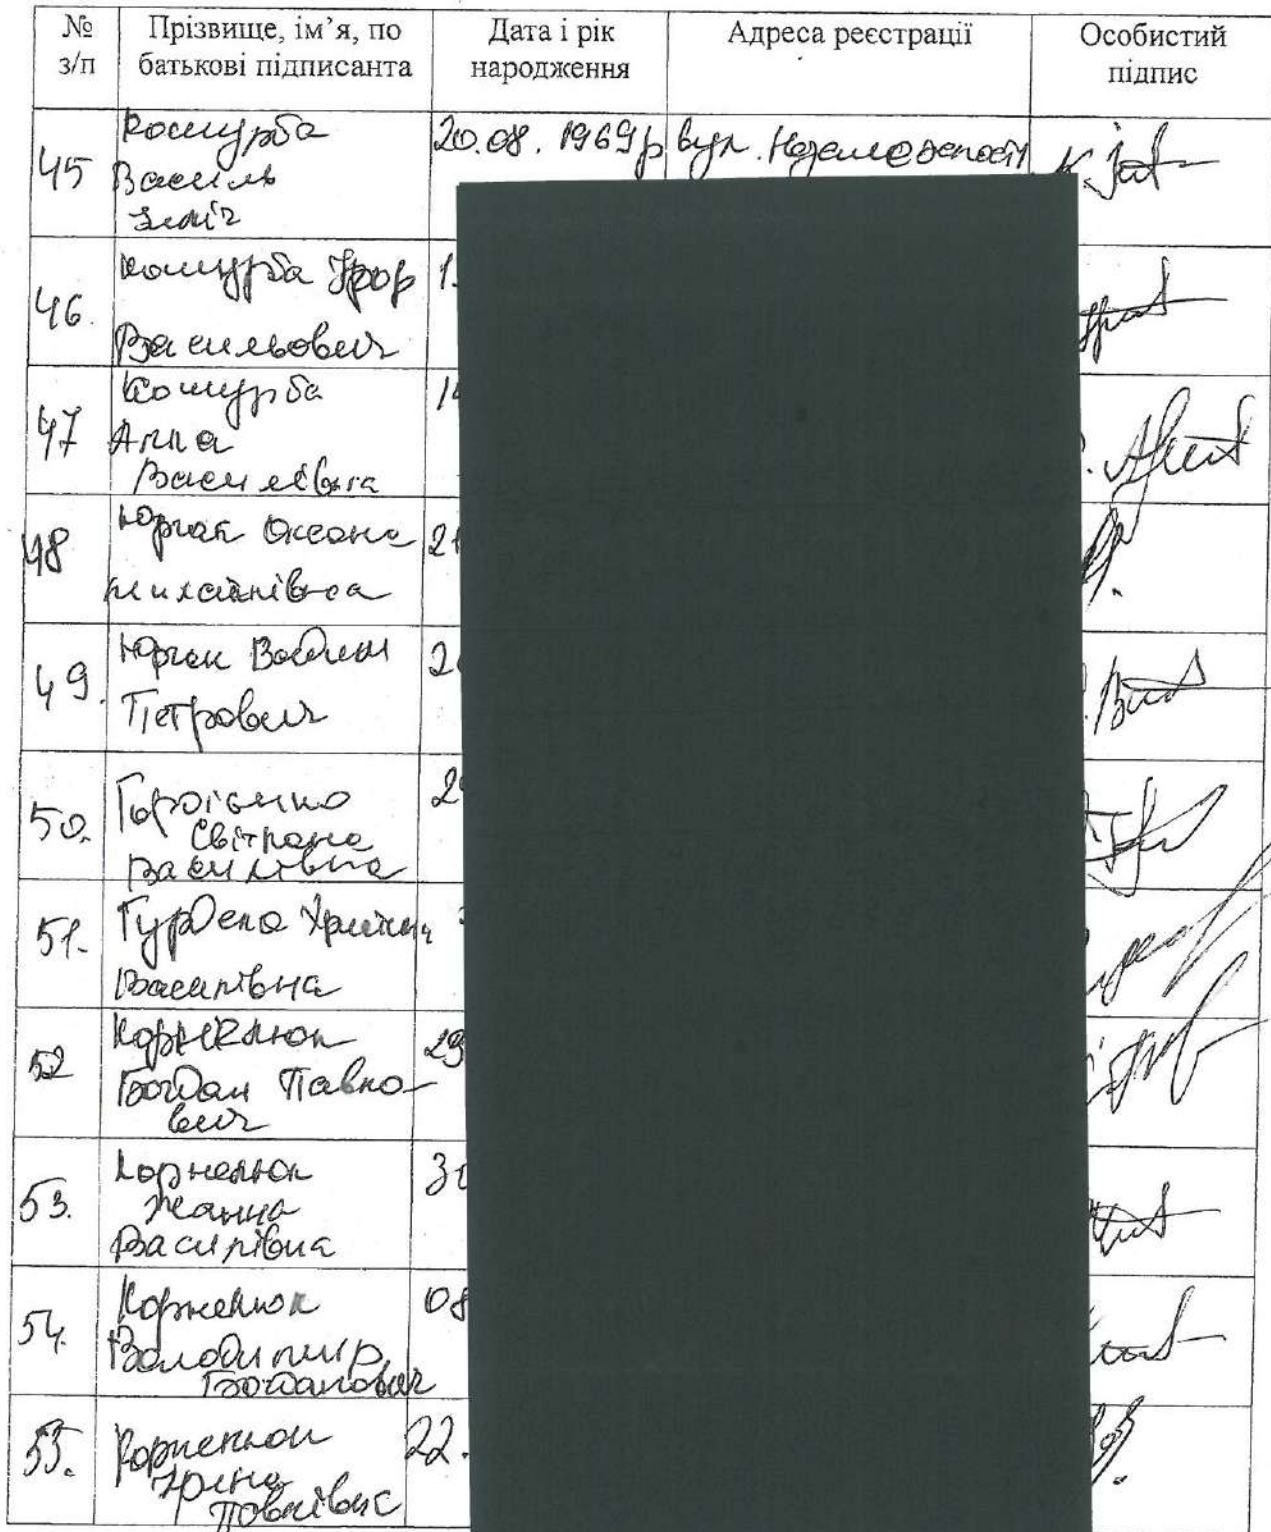 № з/п
Прізвище, ім’я, по батькові підписанта
Дата і рік народження
Адреса реєстрації
Особистий підпис
45
Кошурба
Василь
Ілліч
20.08.1969р
вул. Незалежності
46.
Кошурба Ігор
Васильович
1
47
Кошурба
Анна
Василівна
1
48
Юрчак Оксана
Михайлівна
2
49.
Юрчак Вадим
Петрович
2
50.
Світлана
Василівна
2
51.
Христина
Василівна
52
Корнелюк
Богдан Павло-
вич
29
53.
Корнелюк
Жанна
Василівна
3
54.
Корнелюк
Володимир
Богданович
08
55.
Корнелюк
Ірина
Павлівна
22.